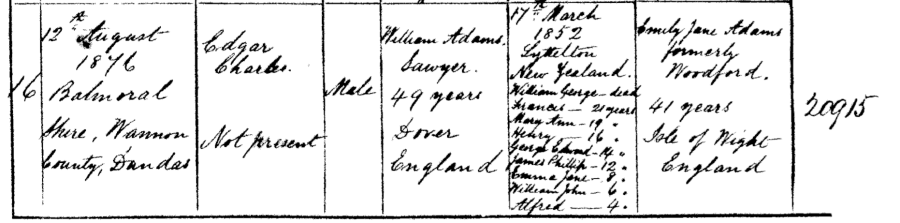 16
12th August
1876
Balmoral
Shire, Wannon
County, Dundas
Edgar
Charles.
Not present
Male
William Adams.
Sawyer.
49 years
Dover
England
17th March
1852
Lyttelton
New Zealand.
William George - dead
Francis - 21 years
Mary Ann - 19 "
Henry - 16 "
George Edward - 14 "
James Phillip - 12 "
Emma Jane - 8 "
William John - 6 "
Alfred - 4 "
Emily Jane Adams
formerly
Woodford.
41 years
Isle of Wight
England
20915